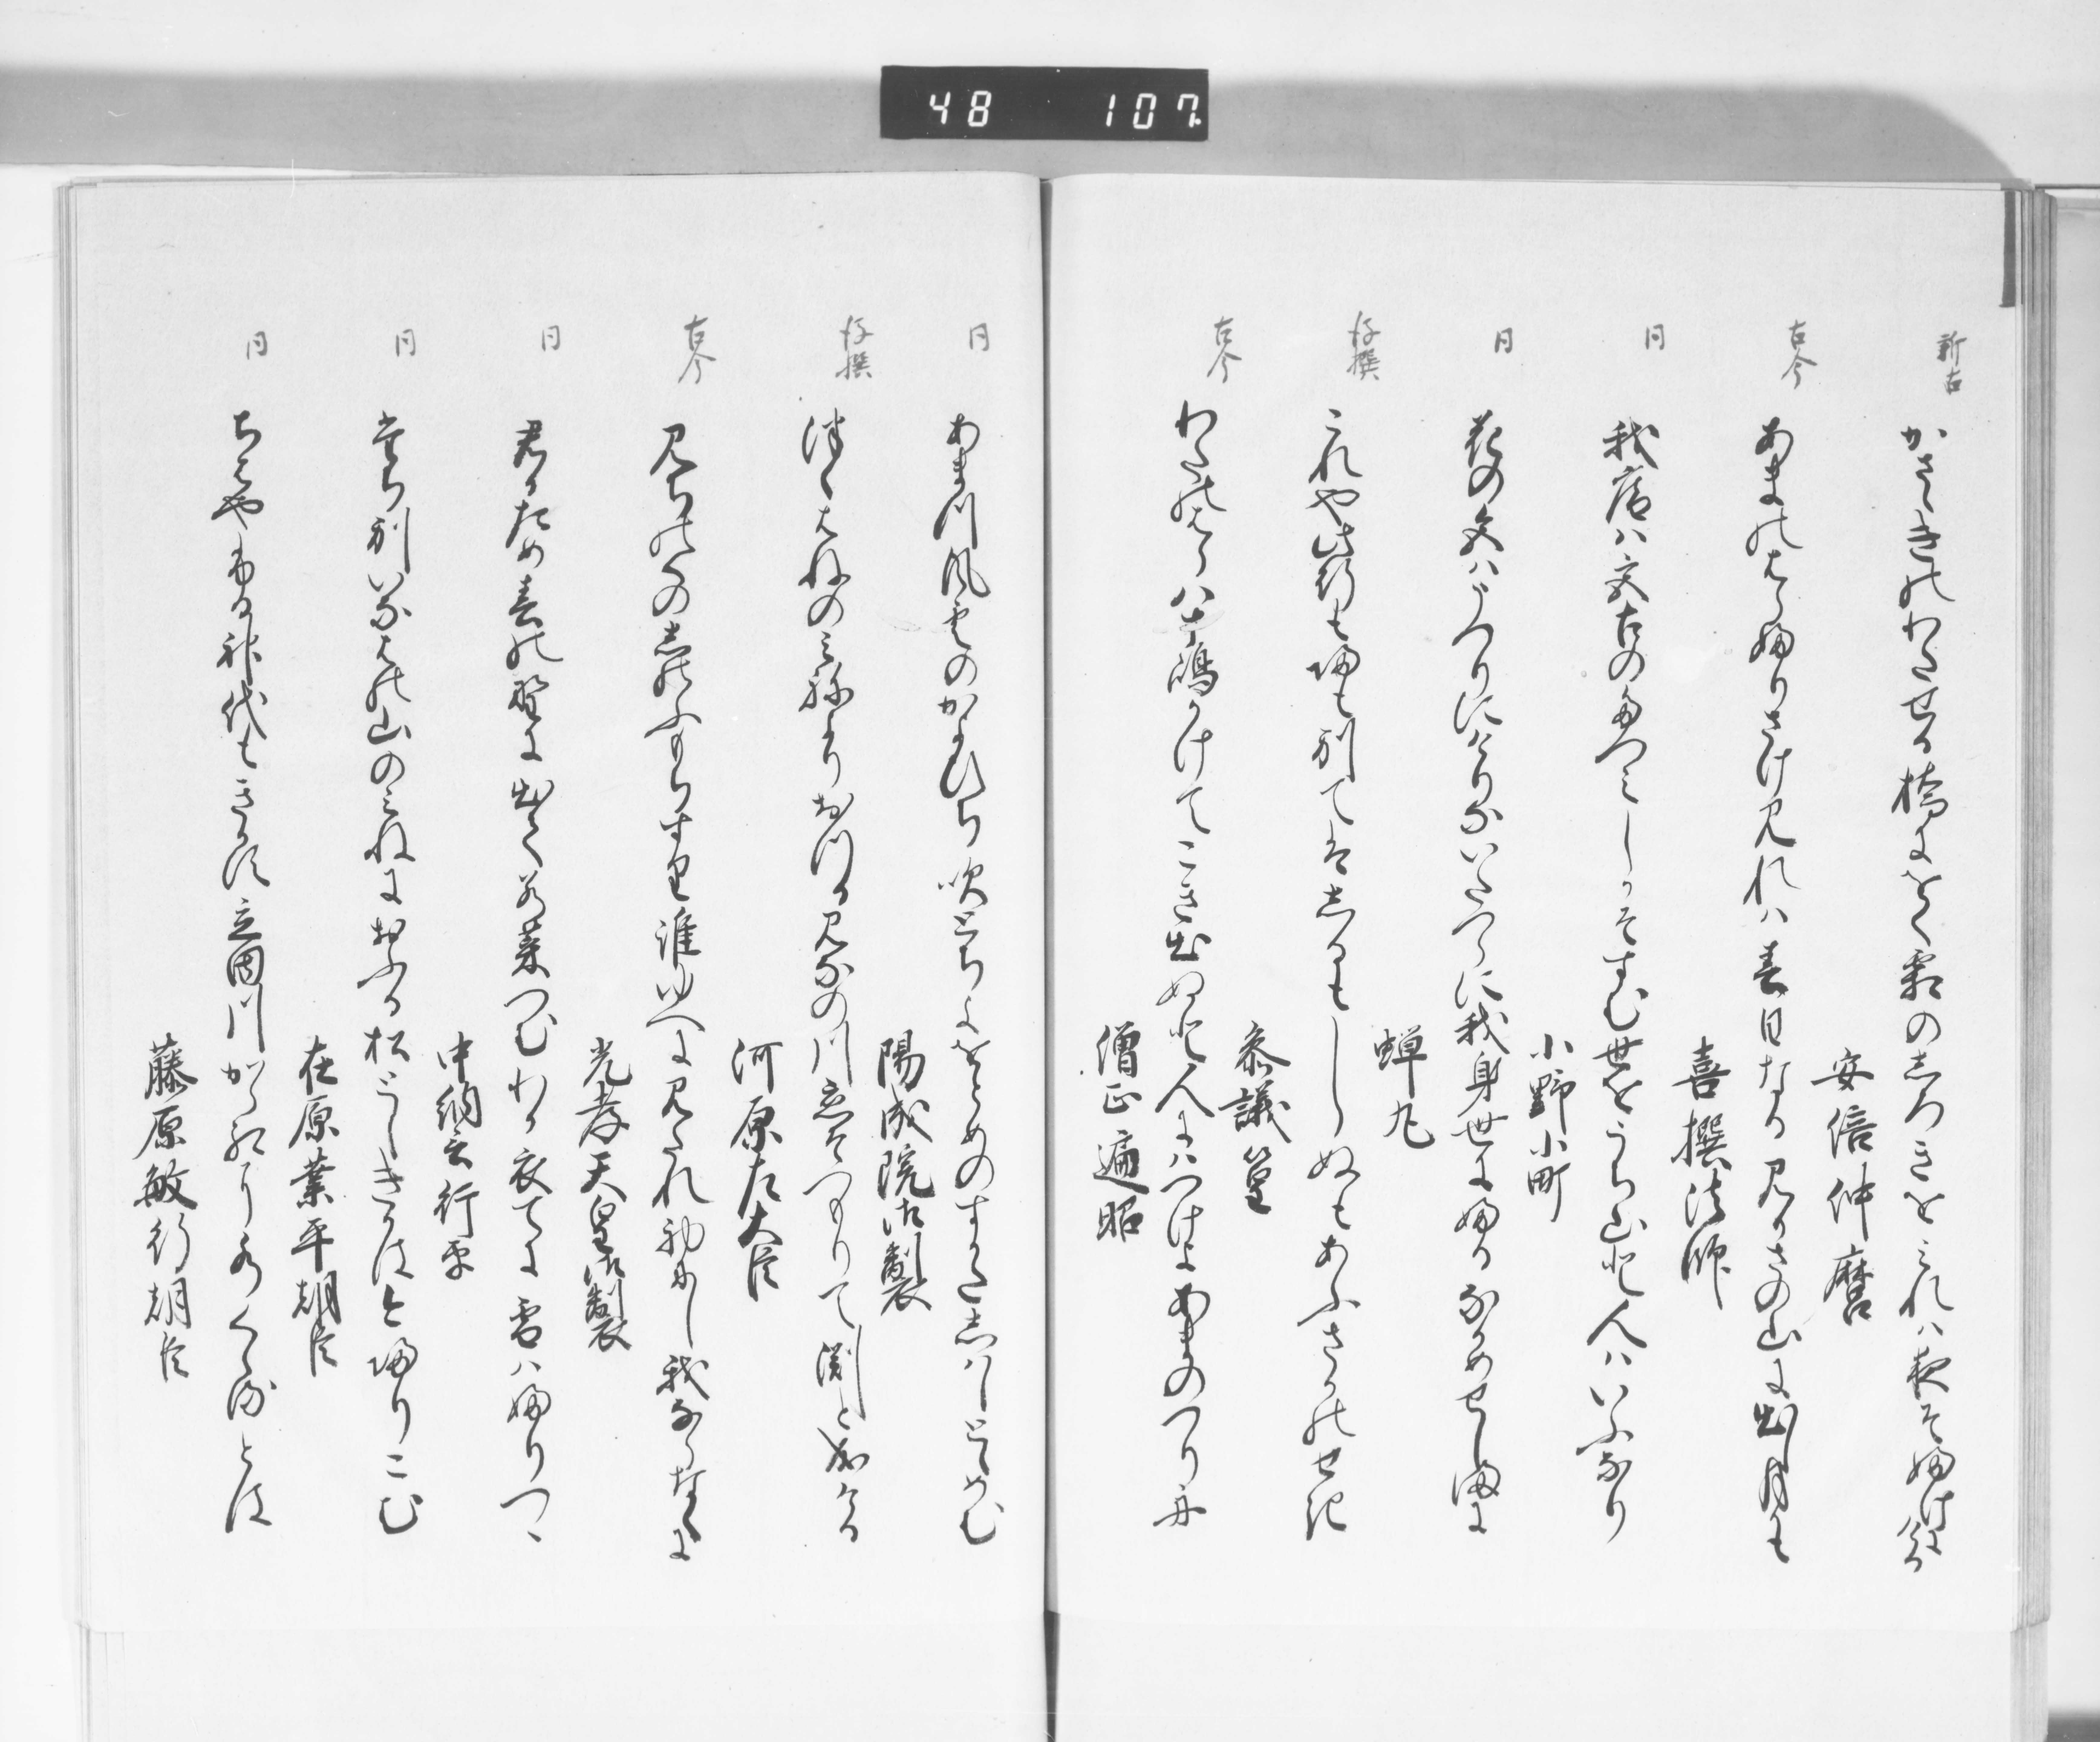 48 107
新古
かさゝきのわたせる橋にをく霜のしろきをみれは夜そ婦けにける
安倍仲麿
古今
あまのはら婦りさけ見れは春日なる見かさの山に出し月も
喜撰法師
同
我庵ハ文古のたつミしかそすむ世をうち山と人ハいふなり
小野小町
同
花の色ハうつりにけりないたつらに我身世に婦るなかめせし満に
蝉丸
後撰
これや此行も帰も別てはしるもしらぬもあふさかのせき
参議篁
古今
わたのはら八十嶋かけてこき出ぬと人にハつけよあまのつり舟
僧正遍昭
同
あま川風雲のかよひち吹とちよをとめのすかたしハしとゝめむ
陽成院御製
後撰
つくはねのみねよりおつる見なの川恋そつもりて渕と成ける
河原左大臣
古今
見ちのくの志のふもちすり誰ゆへに見たれ初にし我ならなくに
光孝天皇御製
同
君かため春の野に出て若菜つむわか衣てに雪ハ婦りつゝ
中納言行平
同
立ち別いなはの山のみねにおふる松としきかは今帰りこむ
在原業平朝臣
同
ちはやふる神代もきかす立田川からくれなゐに水くゝるとは
藤原敏行朝臣